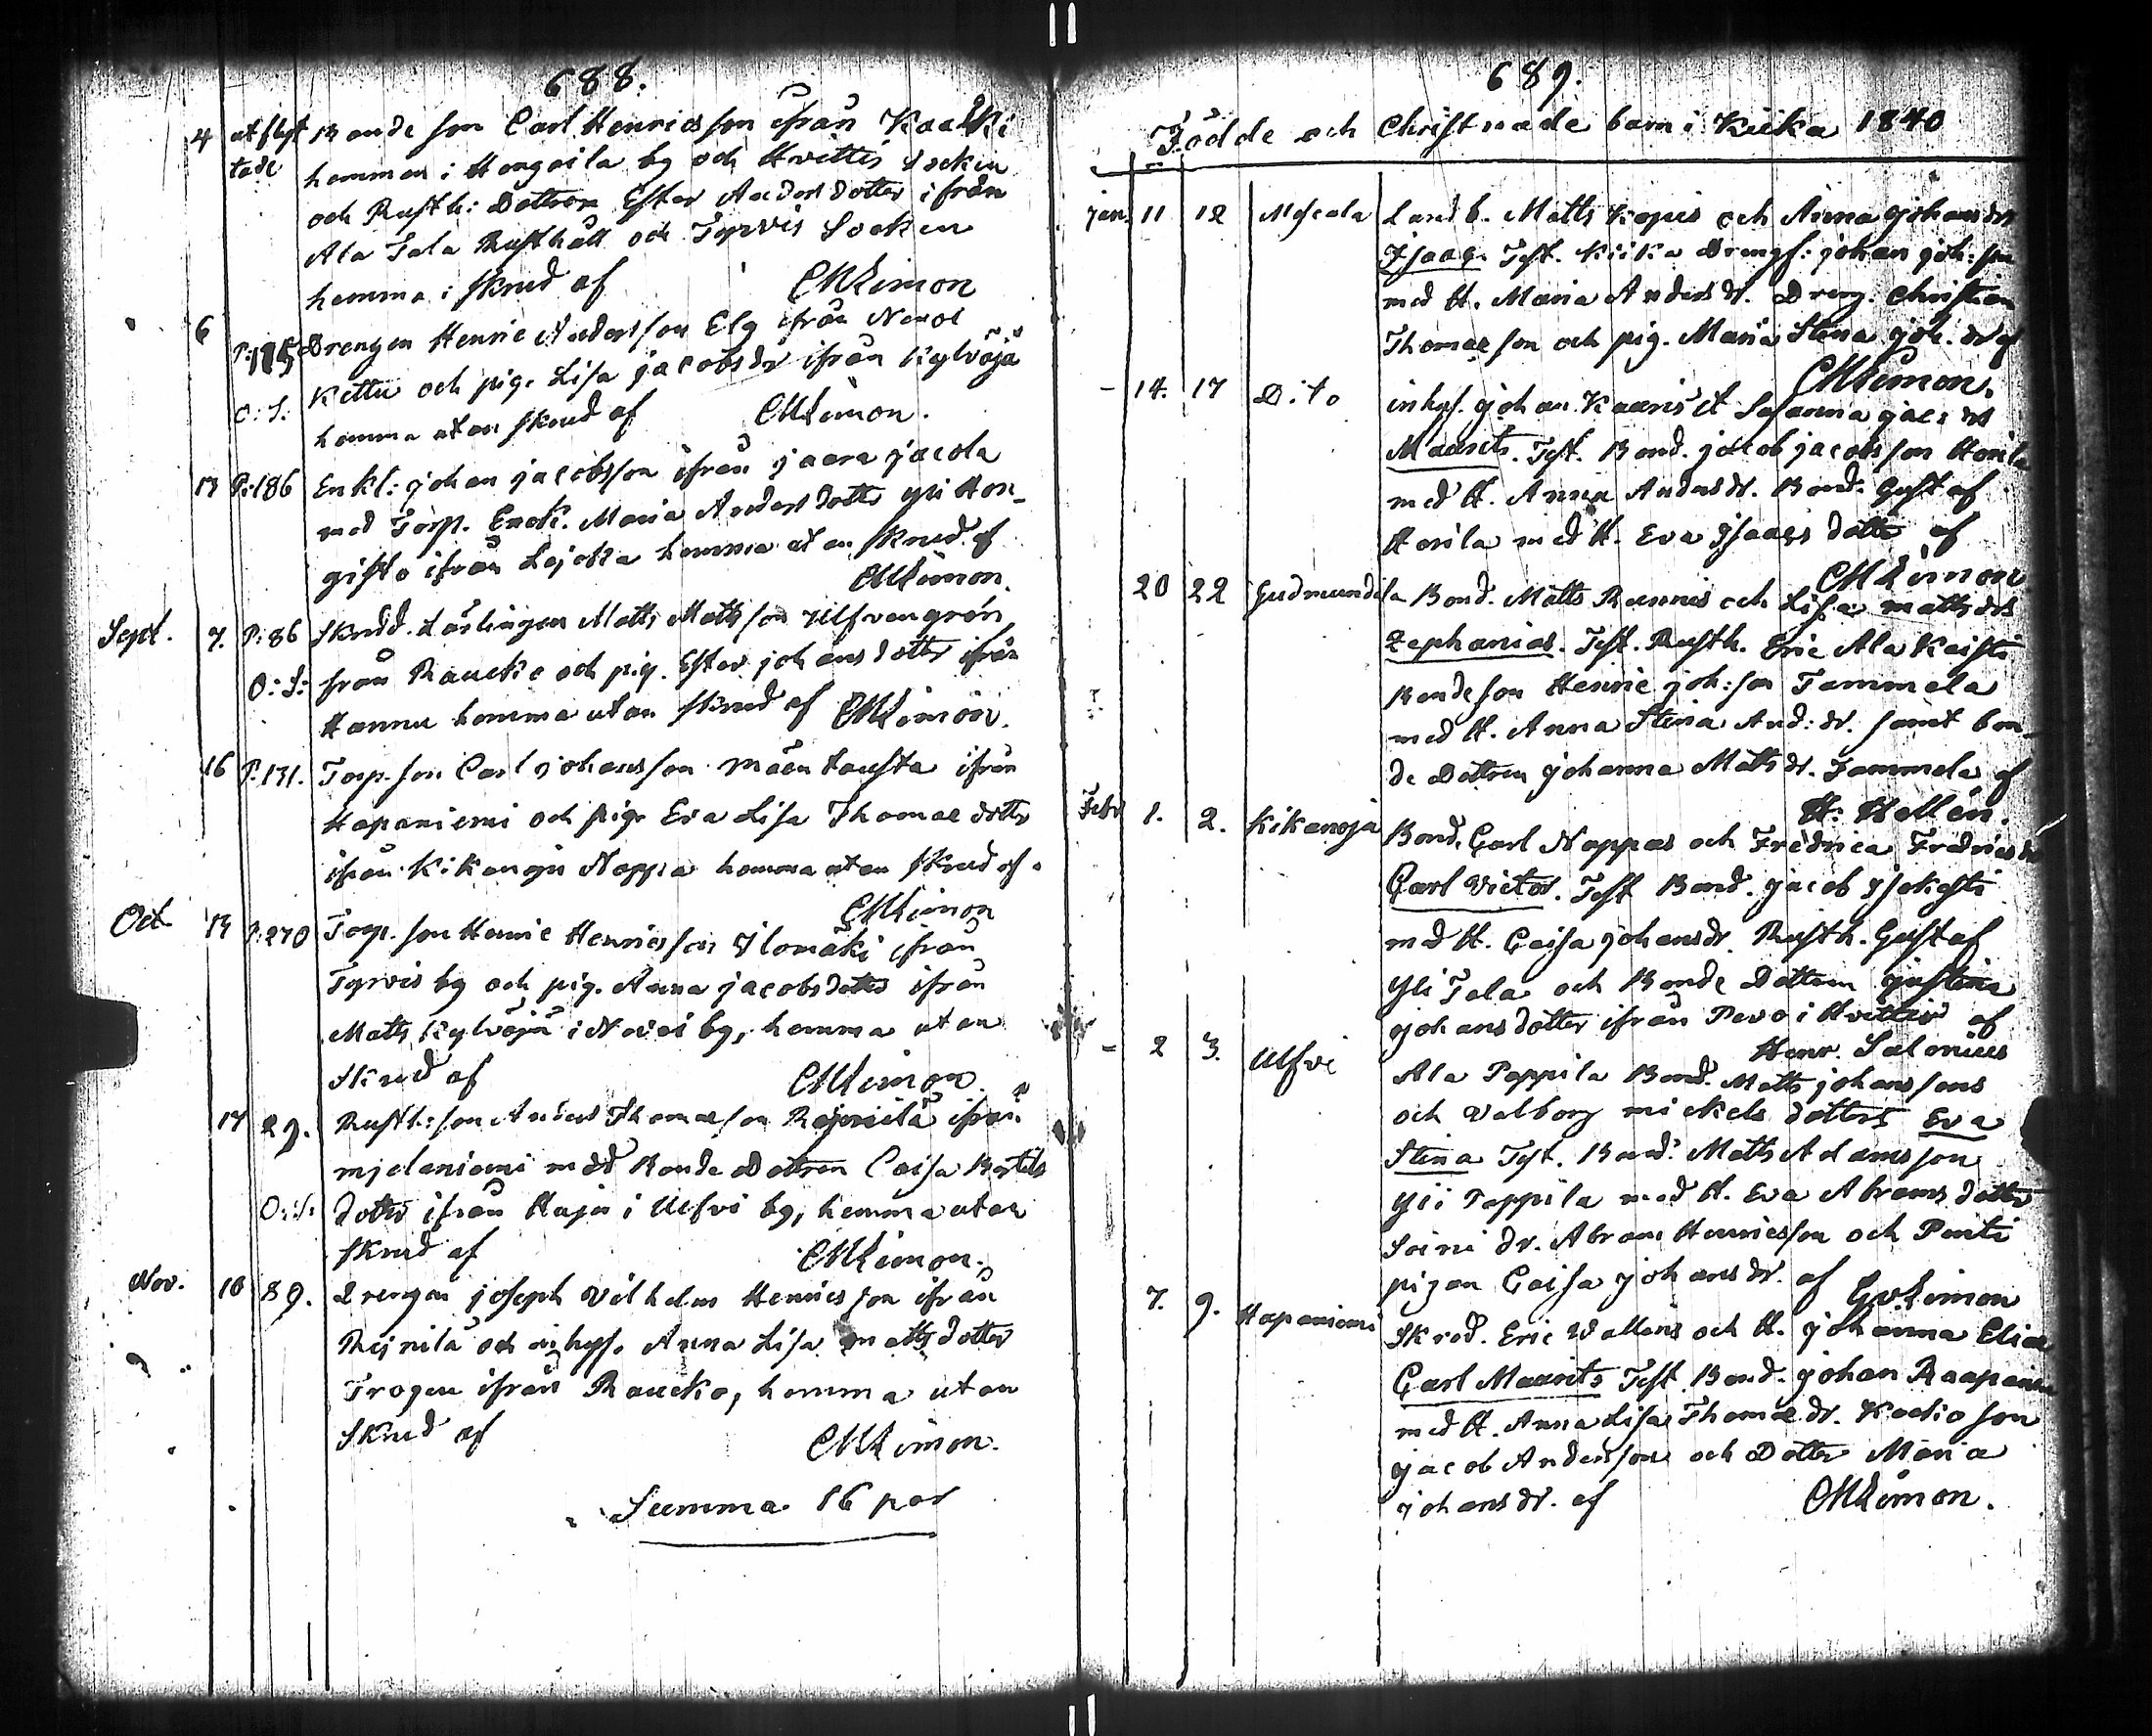 688.
4 utflyt Bonde son Carl Henricsson ifrån Kaukki
tade hemman i Hongoila by och Hvittis Socken
och Rusth: Dottren Ester Andersdotter ifrån
Ala Tala Rusthåll och Tyrvis Socken
hemma i skrud af CMLimon
6 P:115 Drengen Henric Andersson Elg ifrån
Kettu och pig. Lisa jacobsdr ifrån Kylväjä
O:S: hemma utan skrud af CMLimon.
13 P:186 Enkl: johan jacobsson ifrån jaara jacola
med Torp. Enck. Maria Andersdotter yli Hon-
gisto ifrån Lejotta hemma utan skrud af
CMLimon.
Sept. 7. P:86 Skrdd. Lärlingen Matts Mattsson Ulfvengrén
från Raucko och pig. Ester johansdotter ifrån
O:S: Hannu hemma utan skrud af CMLimon.
16 P.131. Torp. son Carl johansson Mäentausta ifrån
Hapaniemi och pig. Eva Lisa Thomae dotter
ifrån Kikanoja Nappa hemma utan skrud af
CMLimon
Oct. 14 P:270 Torp. son Henric Henricsson Ylomäki ifrån
Tyrvis by och pig. Anna jacobsdotter ifrån
Matts Kylväjä i by, hemma utan
Skrud af CMLimon.
17 29. Rusth: son Anders Thomaeson Rejnilä ifrån
mjelaniemi med Bonde Dottren Caisa Bertils
O:S: dotter ifrån Kuju i Ulfvi by, hemma utan
skrud af CMLimon.
Nov. 10 89. Drengen joseph Vilhelm Henricsson ifrån
Rejnilä och inhys. Anna Lisa Mattsdotter
Trogen ifrån Raucko, hemma utan
Skrud af CMLimon.
Summa 16 par
689.
Födde och Christnade barn i Kiika 1840
jan. 11 12 Meskala Landb. Matts Kopis och Anna johansdr
Isaac. Test. Kiika Drengf: johan joh:son
med H. Maria Andersdr. Dreng. Christian
Thomaeson och pig. Maria Stina joh. dr af
CMLimon.
- 14. 17 Dito inhys. johan Kaaris et Susanna jac: dr
Maurits. Test. Bond. jacob jacobsson Horila
med H. Anna Andersdr. Bond. Gustaf
Horila med H. Eva Isaacs dotter af
CMLimon
20 22 Gudmundila Bond. Matts Runnis och Lisa mattsdr
Zephanias. Test. Rusth. Eric Ala Kaisti
Bondeson Henric joh:son Tammela
med H. Anna Stina And: dr. samt bon-
de Dottren johanna Matsdr. Tammela af
H. Hellén.
Febr. 1. 2. Kikanoja Bond. Carl Nappas och Fredrica Fredricsdr
Carl Victor. Test Bond. jacob
med H. Caisa johansdr. Rusth. Gustaf
yli Tala och Bonde Dottren justina
johansdotter ifrån Pevo i Hvittis af
Henr. Salonius
- 2 3. Ulfvi Ala Pappila Bond. Matts johanssons
och Valborg mickels dotters Eva
Stina Test. Bond. Matts Adamsson
yli Pappila med H. Eva Abramsdotter
Soini dr. Abram Henricsson och Pirtti
pigan Caisa johansdr. af GvLimon
7. 9. Hapaniemi Skrdd. Eric Vallens och H. johanna Eliae
Carl Maurits Test. Bond. johan Raapanin
med H. Anna Lisa Thomae dr. Kockoson
jacob Andersson och Dotter Maria
johansdr. af CMLimon.